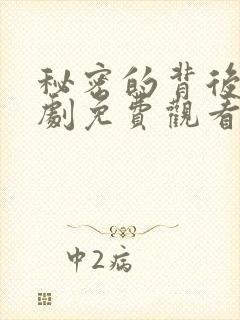 秘密的背後
劇免費觀看
中2病